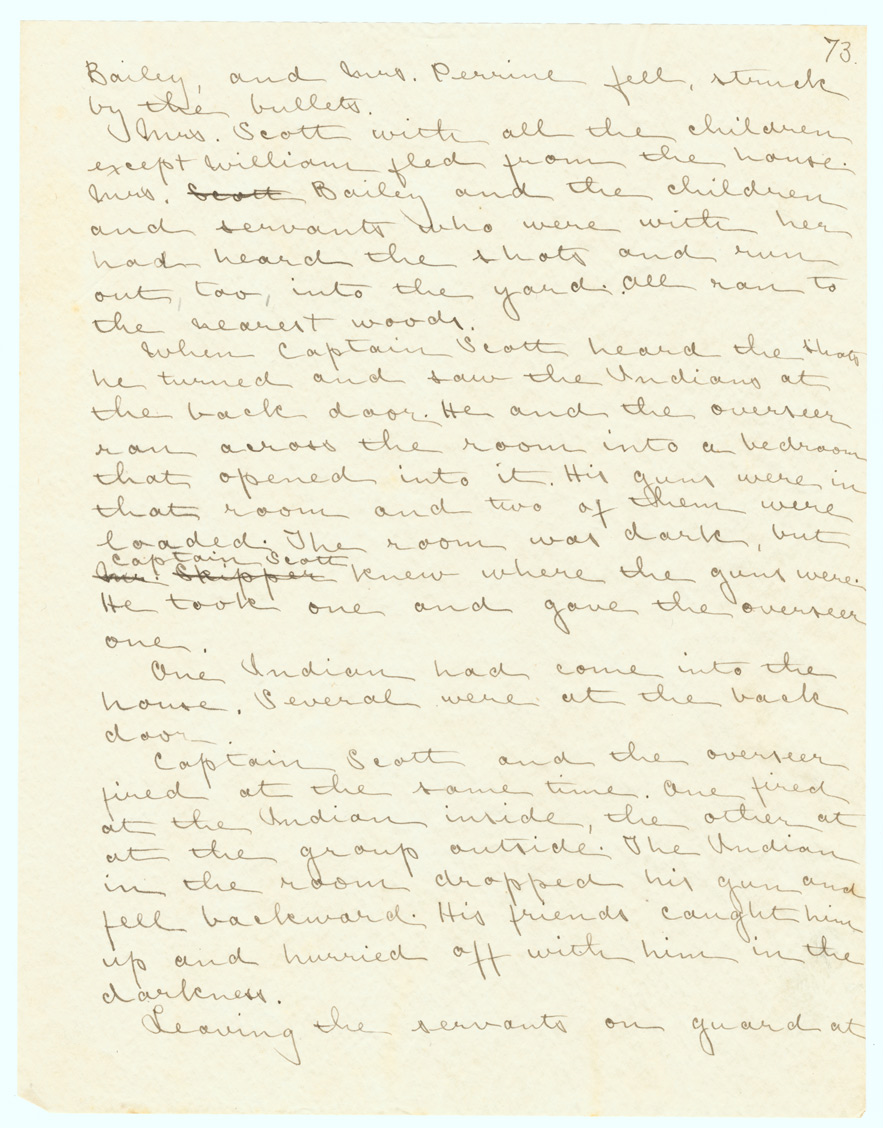 73.
Bailey, and Mrs. Perrine fell, struck
by the bullets.
Mrs. Scott with all the children
except William fled from the house.
Mrs. Scott Bailey and the children
and servants who were with her
had heard the shots and run
out, too, into the yard. All ran to
the nearest woods.
When Captain Scott heard the shots
he turned and saw the Indians at
the back door. He and the overseer
ran across the room into a bedroom
that opened into it. His guns were in
that room and two of them were
loaded. The room was dark, but
Captain Scott
Mr. Skipper knew where the guns were.
He took one and gave the overseer
one.
One Indian had come into the
house. Several were at the back
door.
Captain Scott and the overseer
fired at the same time. One fired
at the Indian inside, the other at
at the group outside. The Indian
in the room dropped his gun and
fell backward. His friends caught him
up and hurried off with him in the
darkness.
Leaving the servants on guard at